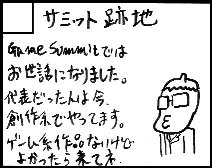 サミット跡地
Game Summitでは
お世話になりました。
代表だったんは今、
創作系でやってます。
ゲーム系作品ないけど
よかったら来てネ.